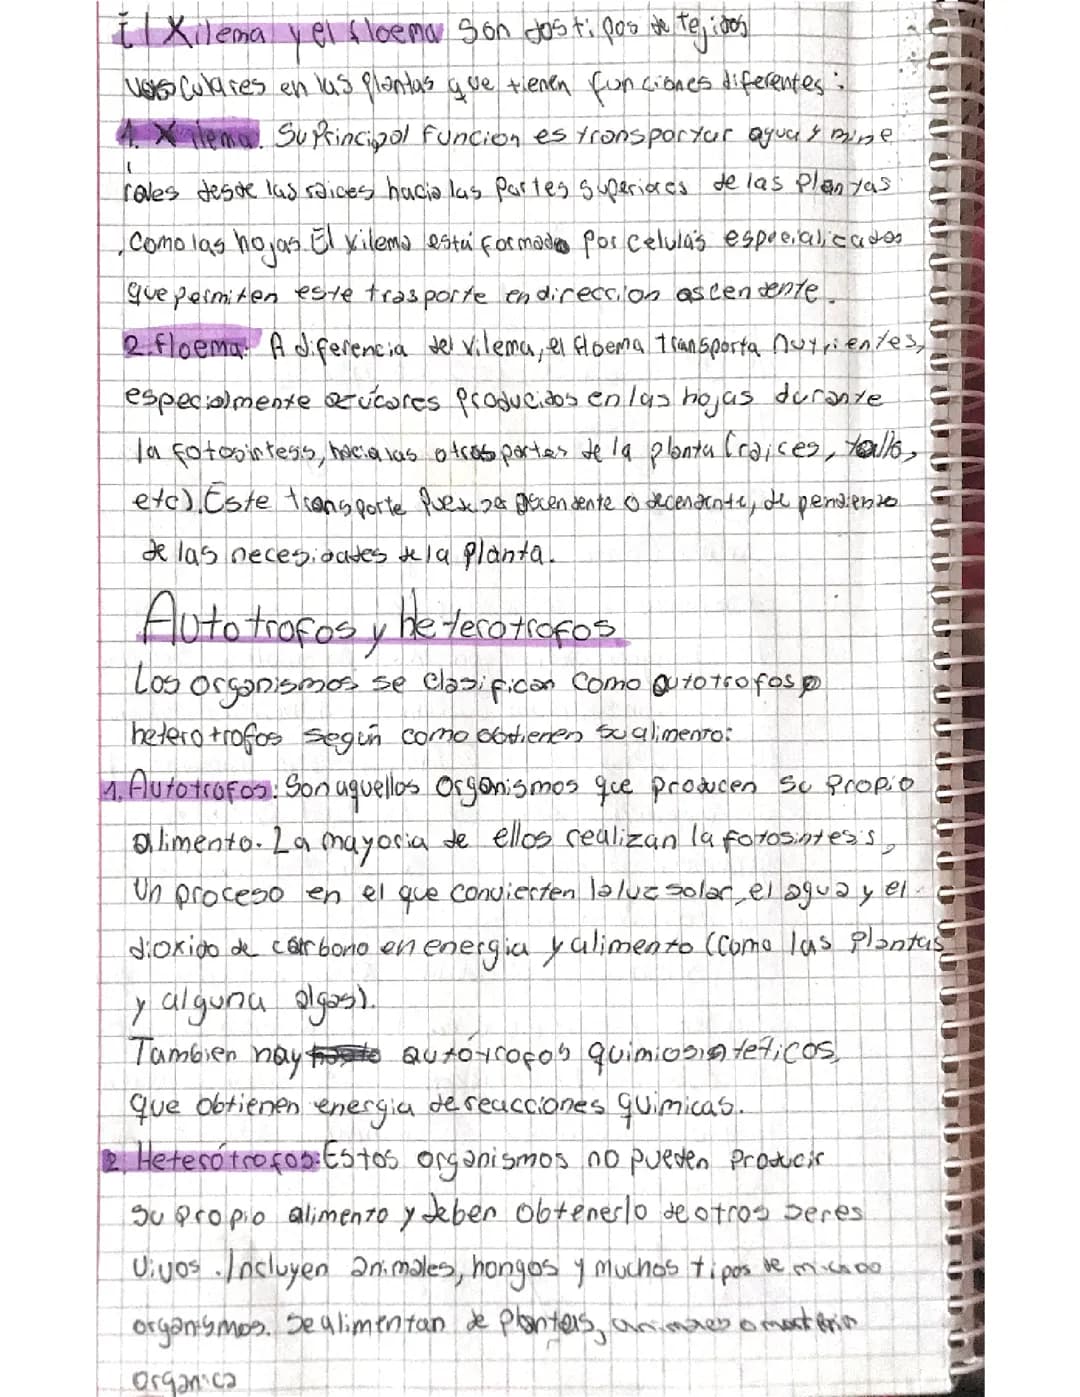 El Xilema y el floema son dos tipos de tejidos
vasculares en las plantas que tienen funciones diferentes:
1. Xilema. Su Principal funcion es transportar agua y mine
rales desde las raices hacia las partes superiores de las Plantas
, como las hojas. El xilema está formado por celulas especialicados
que permiten este trasporte en direccion ascendente.
2. floema: A diferencia del xilema, el floema transporta nutrientes,
especialmente azúcares producidos en las hojas durante
la fotosintesis, hacia las otras partes de la planta (raices, tallo,
etc). Este transporte puede ser ascendente o decendente, de pendiendo
de las necesidades de la planta.
Autotrofos y Heterotrofos
Los organismos se clasifican como autotrofos o
heterotrofos según como obtienen su alimento:
1. Autotrofos: Son aquellos organismos que producen su propio
alimento. La mayoria de ellos realizan la fotosintesis,
Un proceso en el que convierten la luz solar, el agua y el
dioxido de carbono en energia y alimento (como las Plantas
y alguna algas).
Tambien hay autótrofos quimiosinteticos,
que obtienen energia de reacciones quimicas.
2. Heterótrofos: Estos organismos no pueden producir
su propio alimento y deben obtenerlo de otros seres
vivos. Incluyen animales, hongos y muchos tipos de microo
organismos. Se alimentan de plantas, animales o materia
organica